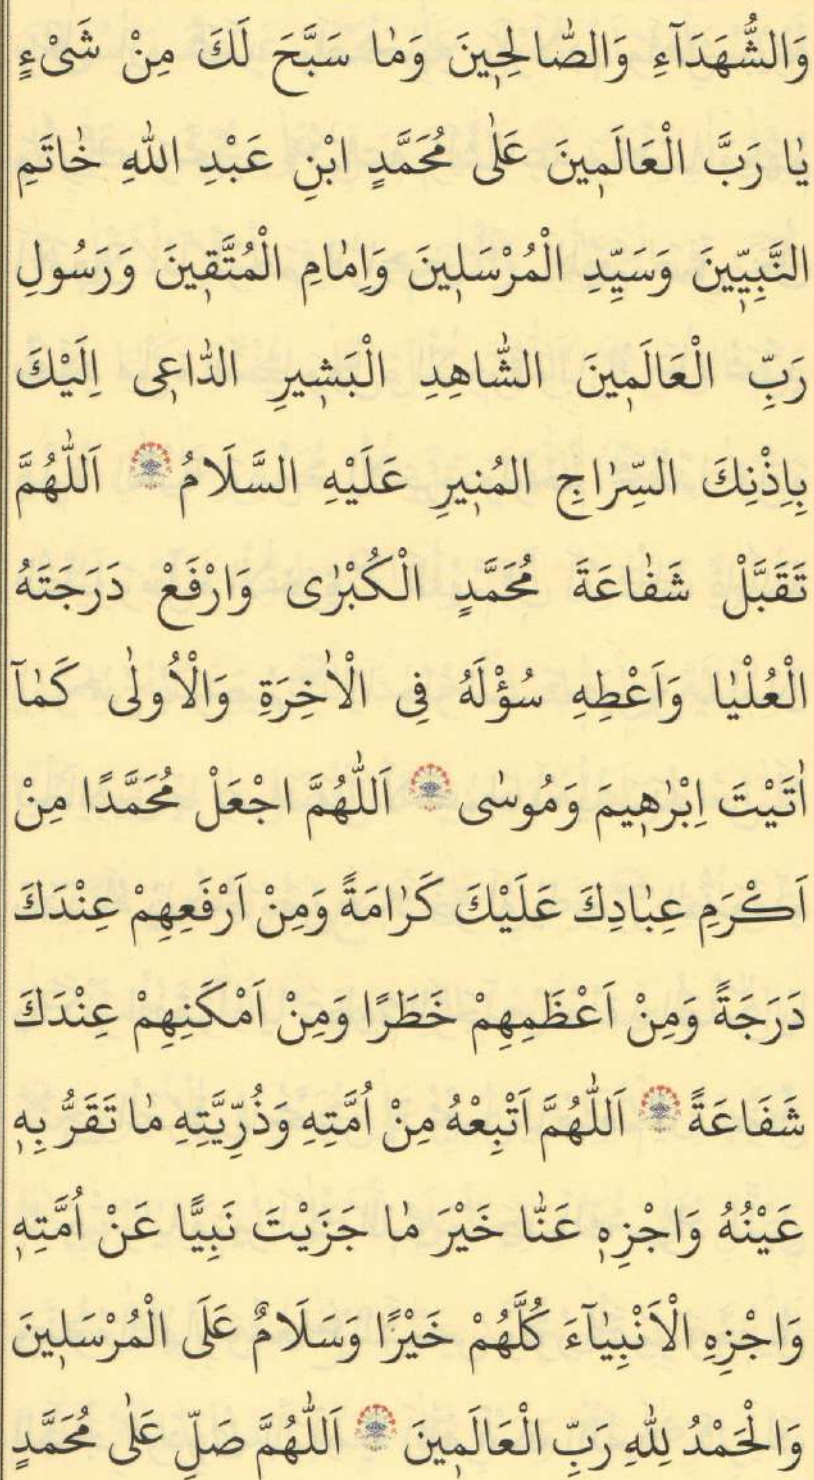 وَالشُّهَدَآءِ وَالصّٰالِحٖينَ وَمٰا سَبَّحَ لَكَ مِنْ شَىْءٍ
يٰا رَبَّ الْعَالَمٖينَ عَلٰى مُحَمَّدٍ ابْنِ عَبْدِ اللّٰهِ خٰاتَمِ
النَّبِيّٖينَ وَسَيِّدِ الْمُرْسَلٖينَ وَاِمٰامِ الْمُتَّقٖينَ وَرَسُولِ
رَبِّ الْعَالَمٖينَ الشّٰاهِدِ الْبَشٖيرِ الدّٰاعٖى اِلَيْكَ
بِاِذْنِكَ السِّرٰاجِ المُنٖيرِ عَلَيْهِ السَّلَامُ اَللّٰهُمَّ
تَقَبَّلْ شَفٰاعَةَ مُحَمَّدٍ الْكُبْرٰى وَارْفَعْ دَرَجَتَهُ
الْعُلْيٰا وَاَعْطِهِ سُؤْلَهُ فِى الْاٰخِرَةِ وَالْاُولٰى كَمٰآ
اٰتَيْتَ اِبْرٰهٖيمَ وَمُوسٰى اَللّٰهُمَّ اجْعَلْ مُحَمَّدًا مِنْ
اَكْرَمِ عِبٰادِكَ عَلَيْكَ كَرٰامَةً وَمِنْ اَرْفَعِهِمْ عِنْدَكَ
دَرَجَةً وَمِنْ اَعْظَمِهِمْ خَطَرًا وَمِنْ اَمْكَنِهِمْ عِنْدَكَ
شَفَاعَةً اَللّٰهُمَّ اَتْبِعْهُ مِنْ اُمَّتِهِ وَذُرِّيَّتِهِ مٰا تَقَرُّ بِهٖ
عَيْنُهُ وَاجْزِهٖ عَنّٰا خَيْرَ مٰا جَزَيْتَ نَبِيًّا عَنْ اُمَّتِهٖ
وَاجْزِهِ الْاَنْبِيٰآءَ كُلَّهُمْ خَيْرًا وَسَلَامٌ عَلَى الْمُرْسَلٖينَ
وَالْحَمْدُ لِلّٰهِ رَبِّ الْعَالَمٖينَ اَللّٰهُمَّ صَلِّ عَلٰى مُحَمَّدٍ